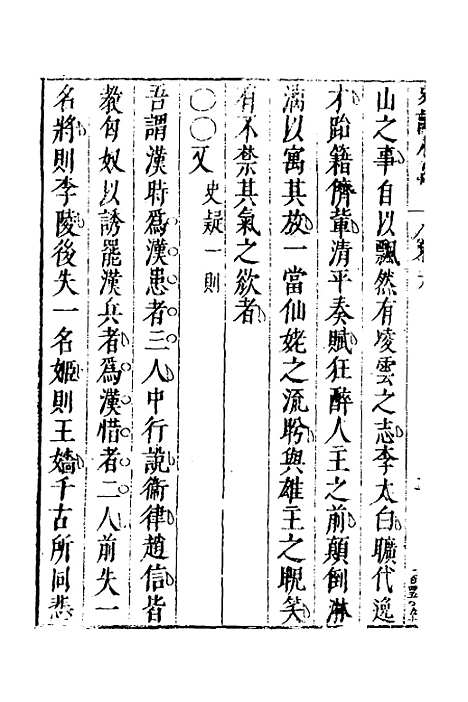 山之事自以飄然有凌雲之志李太白曠代逸
才跆籍儕輩清平奏賦狂醉人主之前顛倒淋
漓以寓其放一當仙姥之流盻與雄主之睨笑
有不禁其氣之欲者
〇〇又 史疑一則
吾謂漢時爲漢患者三人中行說衞律趙信皆
教匈奴以誘罷漢兵者爲漢惜者二人前失一
名將則李陵後失一名姬則王嬙千古所同悲